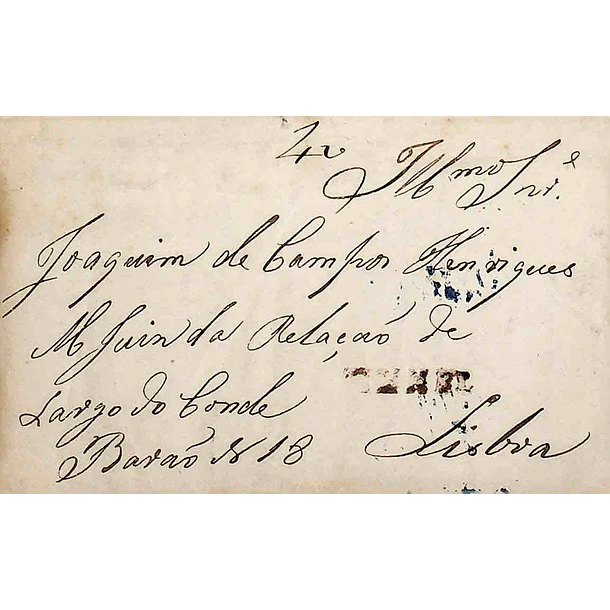 Illmo Snr.e
Joaquim de Campos Henriques
M Juiz da Relação de
Largo do Conde
Barão N 18 Lisboa